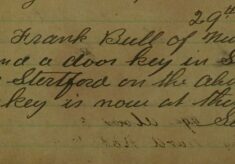 29th
Frank Bull of
a door key in S
Stortford on the abo
key is now at the